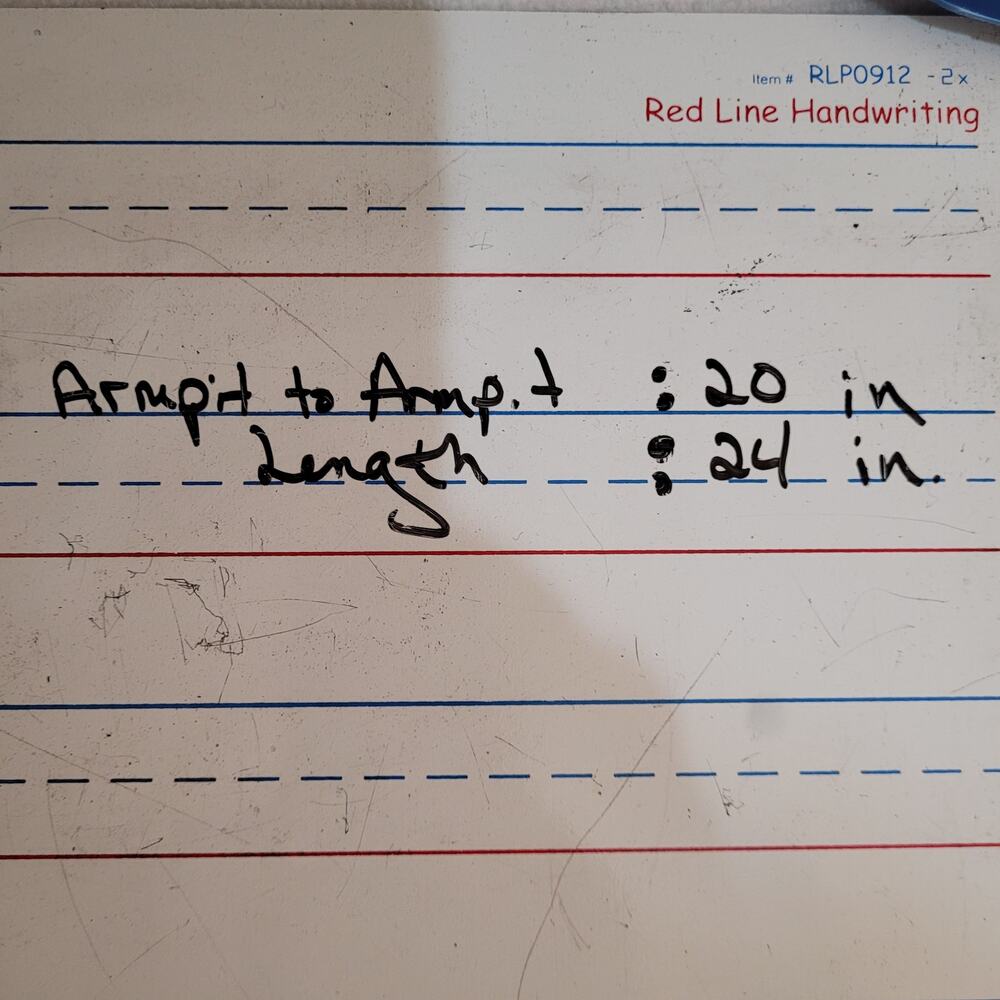 Item # RLP0912 - 2x
Red Line Handwriting
Armpit to Armpit : 20 in
Length : 24 in.